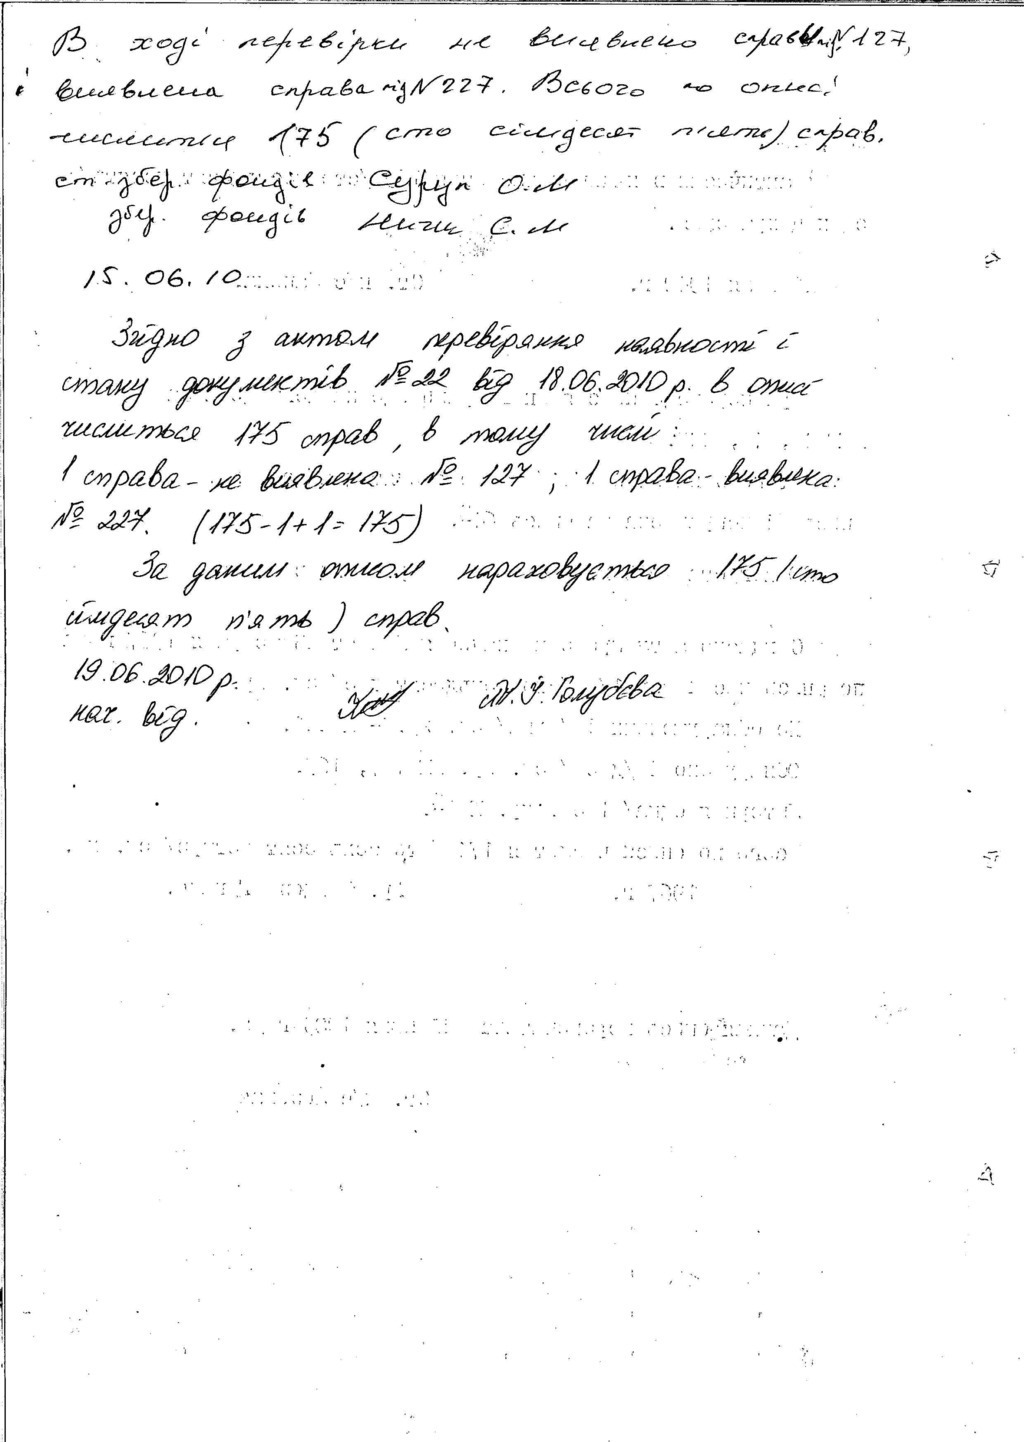 В ході перевірки не виявлено справи під N 127,
і виявлена справа під N 227. Всього по описі
числиться 175 (сто сімдесят п'ять) справ.
ст збер. фондів Суруп О.М
збер. фондів С. М
15. 06. 10
Згідно з актом перевіряння наявності і
стану документів № 22 від 18.06.2010 р. в описі
числиться 175 справ, в тому числі
1 справа - не виявлена № 127; 1 справа - виявлена
№ 227. (175-1+1=175)
За даним описом нараховується 175 (сто
сімдесят п'ять) справ.
19.06.2010 р.
нач. від. Голубєва